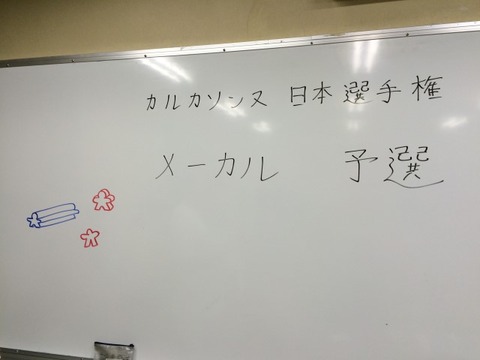 カルカソンヌ 日本選手権
メーカル 予選